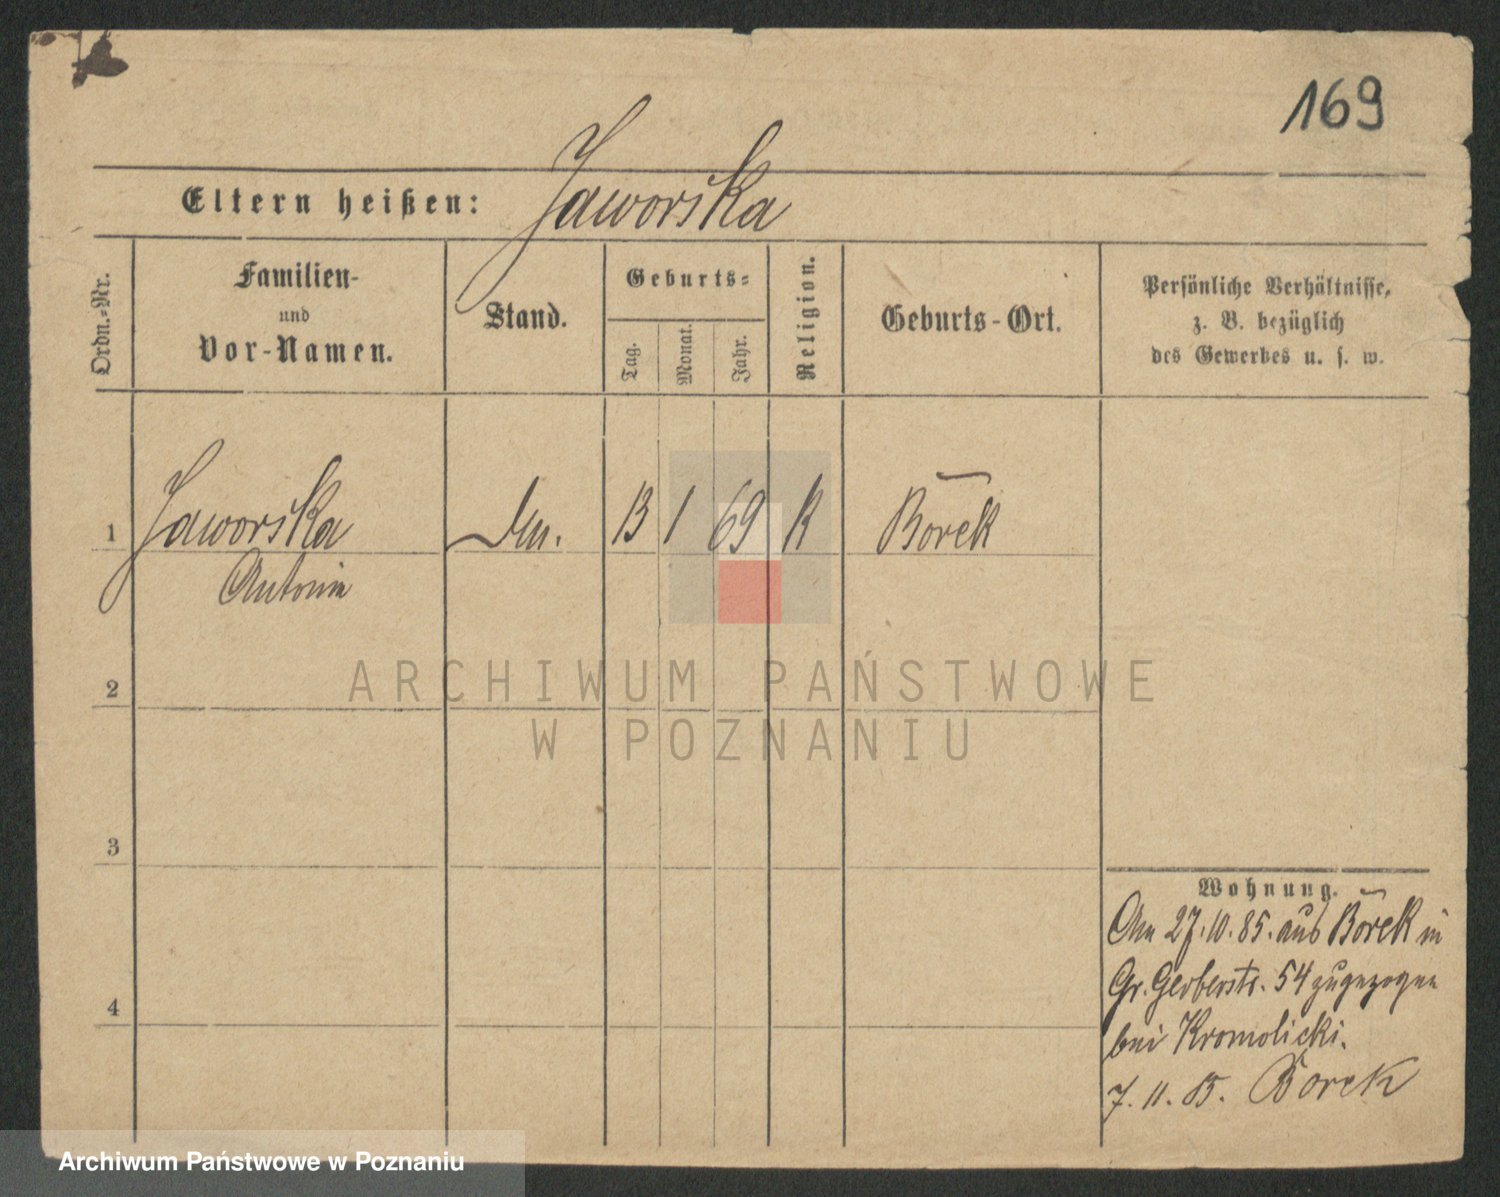 169
Jaworska
Eltern heißen:
Ordn.-Nr.
Familien-
und
Vor-Namen.
Stand.
Geburts-
Tag.
Monat.
Jahr.
Religion.
Geburts-Ort.
Persönliche Verhältnisse,
z. B. bezüglich
des Gewerbes u. s. w.
1 Jaworska 13 1 69 K Borek
Antonie
2
ARCHIWUM PAŃSTWOWE
W POZNANIU
3
Wohnung.
Am 27.10.85. aus Borek in
Gr. Gerberstr. 54 zugezogen
bei Kromolicki.
4
7. 11. 85. Borek
Archiwum Państwowe w Poznaniu